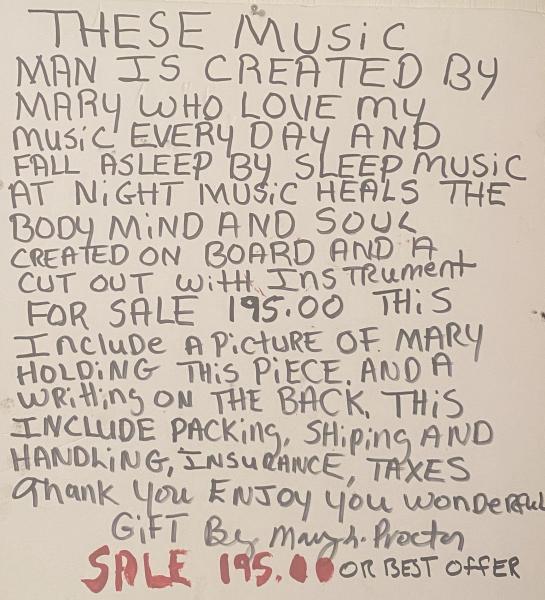 THESE MUSiC
MAN IS CREATED BY
MARY WHO LOVE my
music EVERY DAY AND
FALL ASLEEP BY SLEEP MUSiC
AT NiGHT MUSiC HEALS THE
BODY MIND AND SOUL
CREATED ON BOARD AND A
CUT OUT WITH INSTRUMENT
FOR SALE 195.00 THIS
Include A PICTURE OF MARY
HOLDING THIS PIECE. AND A
WRITTING ON THE BACK. THIS
INCLUDE PACKING, SHIPING AND
HANDLING, INSURANCE, TAXES
Thank you ENJOY you wonderful
GIFT By Mary L. Procter
SALE 195.00 OR BEST OFFER